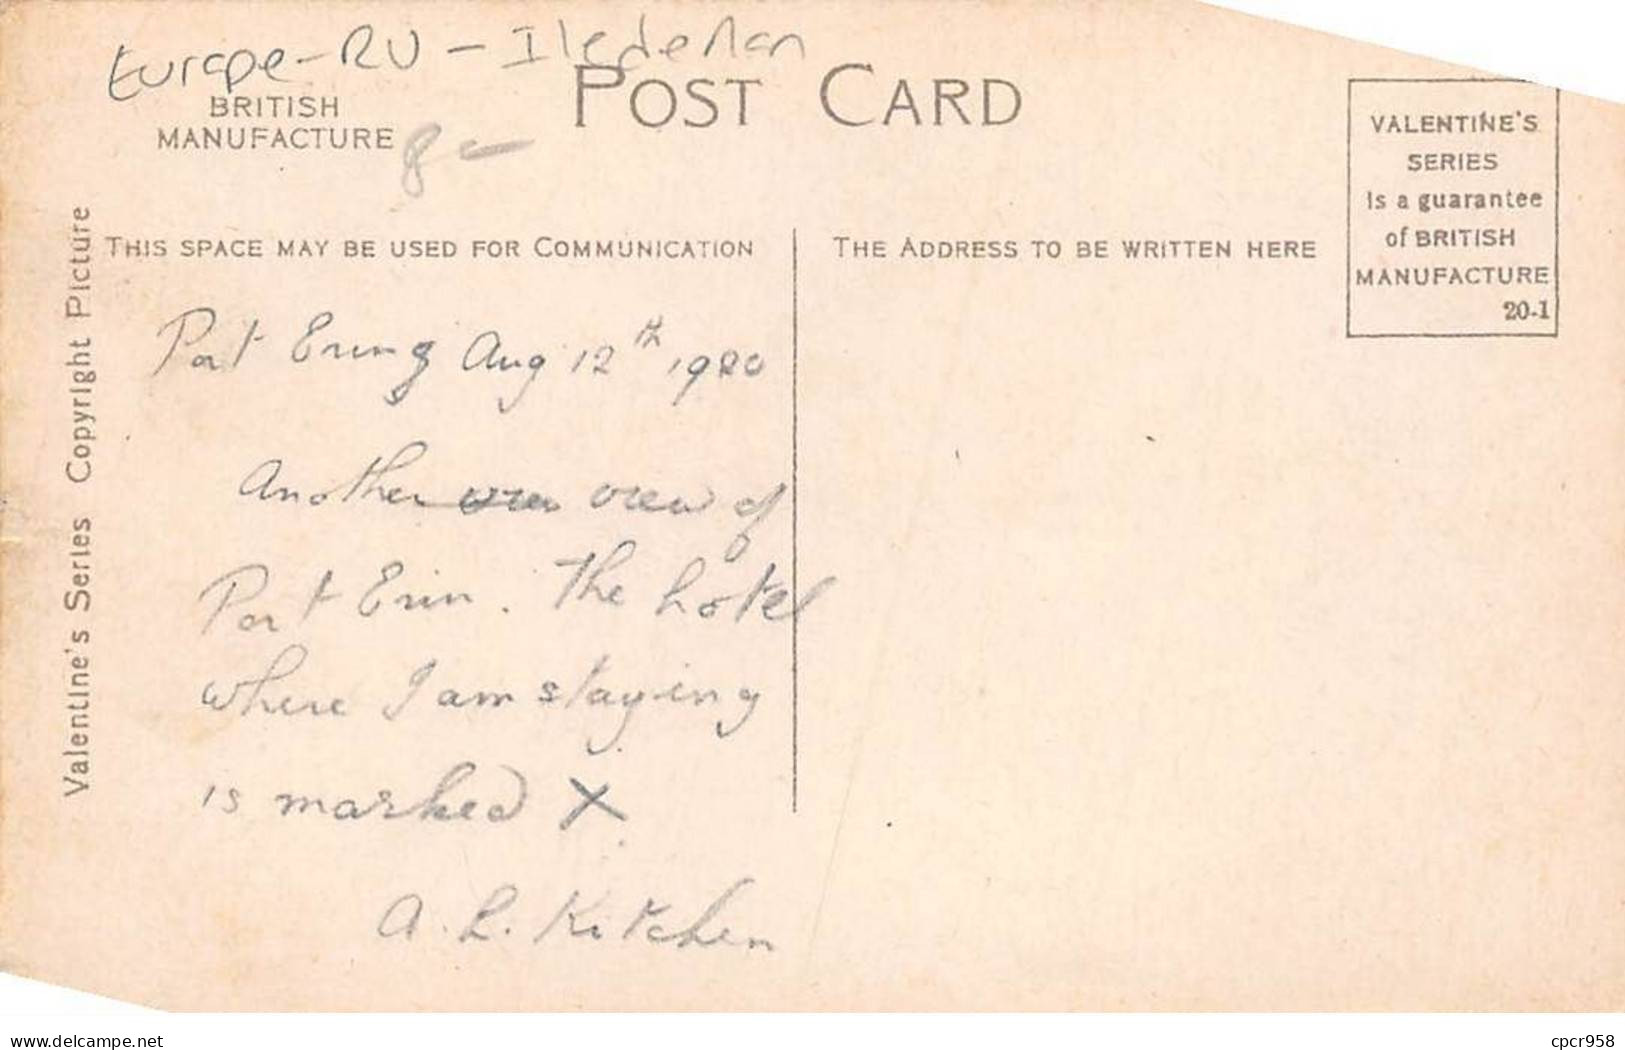 Europe - RU - Ile de Man
POST CARD
BRITISH
MANUFACTURE
8 -
VALENTINE'S
SERIES
is a guarantee
of BRITISH
MANUFACTURE
20-1
Valentine's Series Copyright Picture
THIS SPACE MAY BE USED FOR COMMUNICATION
THE ADDRESS TO BE WRITTEN HERE
Port Erin Aug 12th 1920
Another view of
Port Erin. The hotel
where I am staying
is marked X
A. L. Kitchen
www.delcampe.net
cpcr958